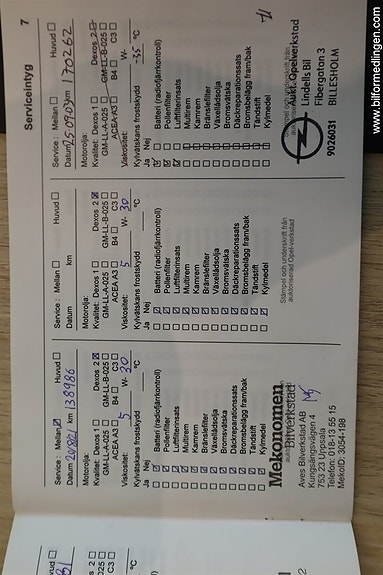 Serviceintyg
7
Service: Mellan ☐ Huvud ☐
Datum 250904 km 170262
Motorolja:
Kvalitet: Dexos 1 ☐ Dexos 2 ☐
GM-LL-A-025 ☐ GM-LL-B-025 ☐
ACEA A3 ☐ B4 ☐ C3 ☐
Viskositet: W-
Kylvätskans frostskydd -35 °C
Ja Nej
Batteri (radiofjärrkontroll)
Pollenfilter
Luftfilterinsats
Multirem
Kamrem
Bränslefilter
Växellådsolja
Bromsvätska
Däckreparationssats
Bromsbelägg fram/bak
Tändstift
Kylmedel
Stämpel och underskrift från
Aukt. Opelverkstad
Lindells Bil
Fibergatan 3
9026031 BILLESHOLM
Service: Mellan ☐ Huvud ☐
Datum km
Motorolja:
Kvalitet: Dexos 1 ☐ Dexos 2 ☒
GM-LL-A-025 ☐ GM-LL-B-025 ☐
ACEA A3 ☐ B4 ☐ C3 ☐
Viskositet: 5 W- 30
Kylvätskans frostskydd °C
Ja Nej
Batteri (radiofjärrkontroll)
Pollenfilter
Luftfilterinsats
Multirem
Kamrem
Bränslefilter
Växellådsolja
Bromsvätska
Däckreparationssats
Bromsbelägg fram/bak
Tändstift
Kylmedel
Stämpel och underskrift från
auktoriserad Opel-verkstad
Service: Mellan ☒ Huvud ☐
km 138986
Motorolja:
Kvalitet: Dexos 1 ☐ Dexos 2 ☒
GM-LL-A-025 ☐ GM-LL-B-025 ☐
ACEA A3 ☐ B4 ☐ C3 ☐
Viskositet: 5 W- 30
Kylvätskans frostskydd °C
Ja Nej
Batteri (radiofjärrkontroll)
Pollenfilter
Luftfilterinsats
Multirem
Kamrem
Bränslefilter
Växellådsolja
Bromsvätska
Däckreparationssats
Bromsbelägg fram/bak
Tändstift
Kylmedel
Mekonomen
Bilverkstad
Aves Bilverkstad AB
Kungsängsvägen 4
753 23 Uppsala
Telefon: 018-13 55 15
MekoID: 3054-198
Huvud ☐
Dexos 2
GM-LL-B-025 ☐
B4 ☐ C3 ☐
°C
www.bilformedlingen.com